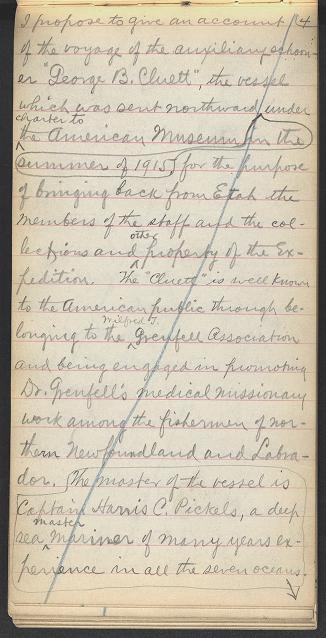 I propose to give an account 84
of the voyage of the auxiliary schoon-
er "George B. Cluett", the vessel
which was sent northward under
charter to
the American Museum in the
summer of 1915, for the purpose
of bringing back from Etah the
members of the staff and the col-
lections and other property of the Ex-
pedition. The "Cluett" is well known
to the American public through be-
Wilfred T.
longing to the Grenfell Association
and being engaged in promoting
Dr. Grenfell's medical missionary
work among the fishermen of nor-
thern Newfoundland and Labra-
dor. The master of the vessel is
Captain Harris C. Pickels, a deep
master
sea mariner of many years ex-
perience in all the seven oceans.